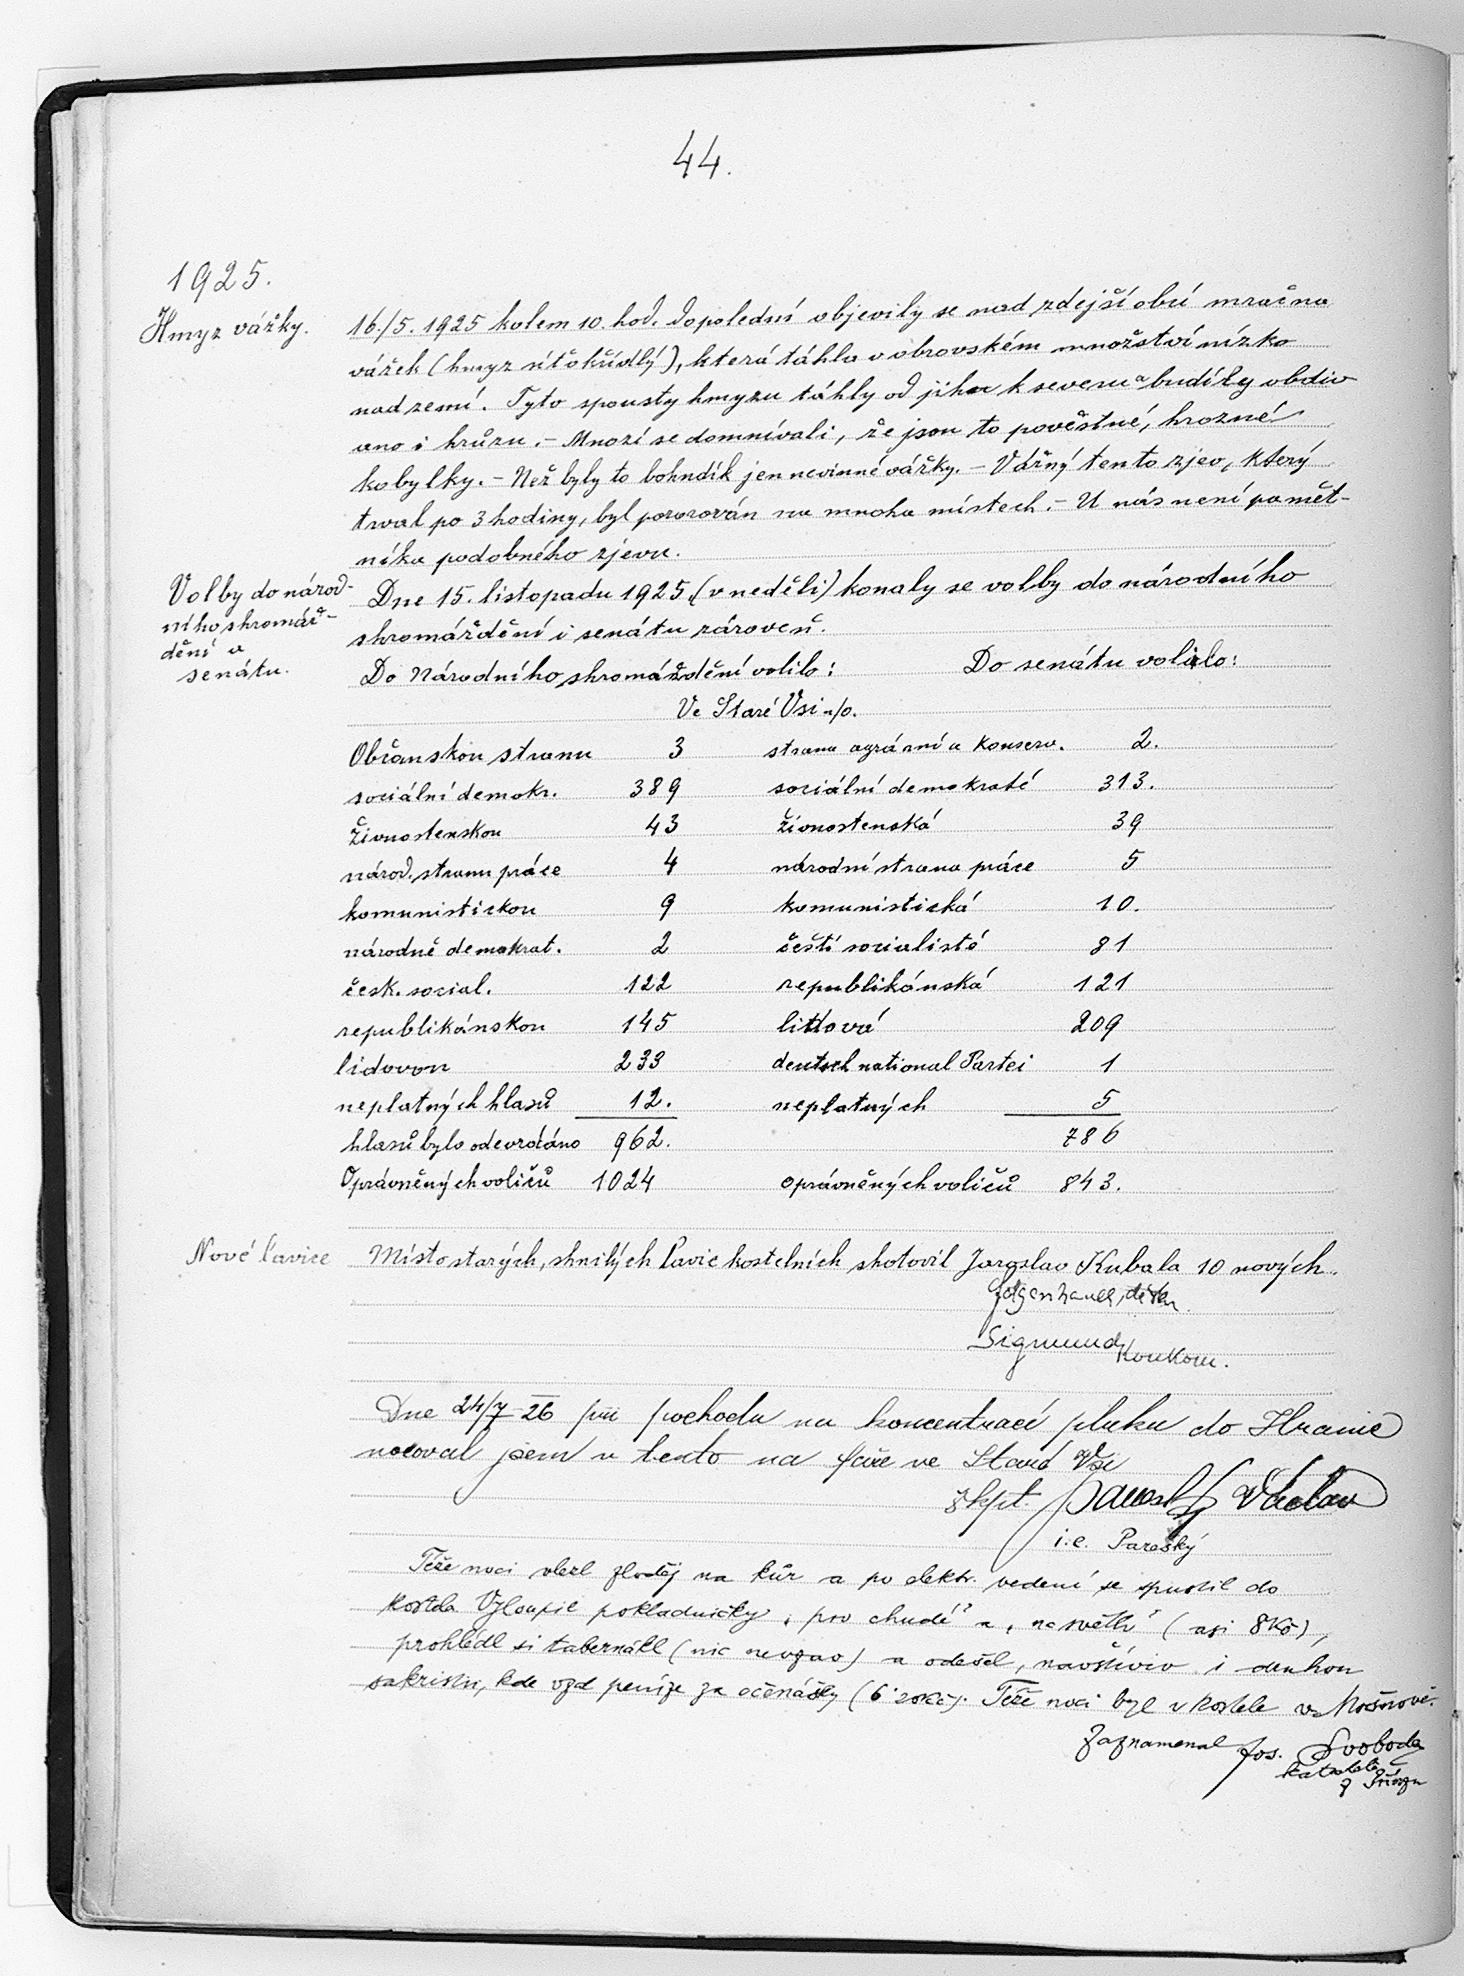 44.
1925.
Hmyz vážky.
16./5. 1925 kolem 10. hod. dopolední objevily se nad zdejší obcí mračna
vážek (hmyz síťokřídlý), která táhla v obrovském množství nízko
nad zemí. Tyto spousty hmyzu táhly od jihu k severu a budily obdiv
ano i hrůzu. – Mnozí se domnívali, že jsou to pověstné, hrozné
kobylky. – Než byly to bohudík jen nevinné vážky. – Vážný tento zjev, který
trval po 3 hodiny, byl pozorován na mnoha místech. – U nás není pamět-
níka podobného zjevu.
Volby do národ-
ního shromáž-
dění a
senátu.
Dne 15. listopadu 1925 (v neděli) konaly se volby do národního
shromáždění i senátu zároveň.
Do Národního shromáždění volilo: Do senátu volilo:
Ve Staré Vsi n/o.
Občanskou stranu 3 strana agrární a konserv. 2.
sociální demokr. 389 sociální demokraté 313.
živnostenskou 43 živnostenská 39
národ. stranu práce 4 národní strana práce 5
komunistickou 9 komunistická 10.
národně demokrat. 2 čeští socialisté 81
česk. social. 122 republikánská 121
republikánskou 145 lidová 209
lidovou 233 deutsch national Partei 1
neplatných hlasů 12. neplatných 5
hlasů bylo odevzdáno 962. 786
Oprávněných voličů 1024 oprávněných voličů 843.
Nové lavice
Místo starých, shnilých lavic kostelních shotovil Jaroslav Kubala 10 nových.
Sigmund
Dne 24/7 26 při pochodu na koncentraci pluku do Hranic
nocoval jsem v tento na faře ve Staré Vsi
škpt. Václav
i.e.
Téže noci vlezl zloděj na kůr a po elektr. vedení se spustil do
kostela. Vyloupil pokladničky „pro chudé" a „na světlo" (asi 8 Kč),
prohlédl si tabernákl (nic nevzav) a odešel, navštíviv i druhou
sakristii, kde vzal peníze za očenášky (6 Kč). Téže noci byl v kostele v Mošnově.
Zaznamenal Jos. Svoboda
katecheta
z Příbora